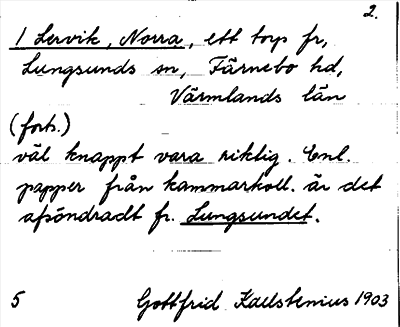 2.
1 Lervik, Norra, ett torp fr,
Lungsunds sn, Färnebo hd,
Värmlands län
(forts.)
väl knappt vara riktig. Enl.
papper från kammarkoll. är det
afsöndradt fr. Lungsundet.
5 Gottfrid Kallstenius 1903